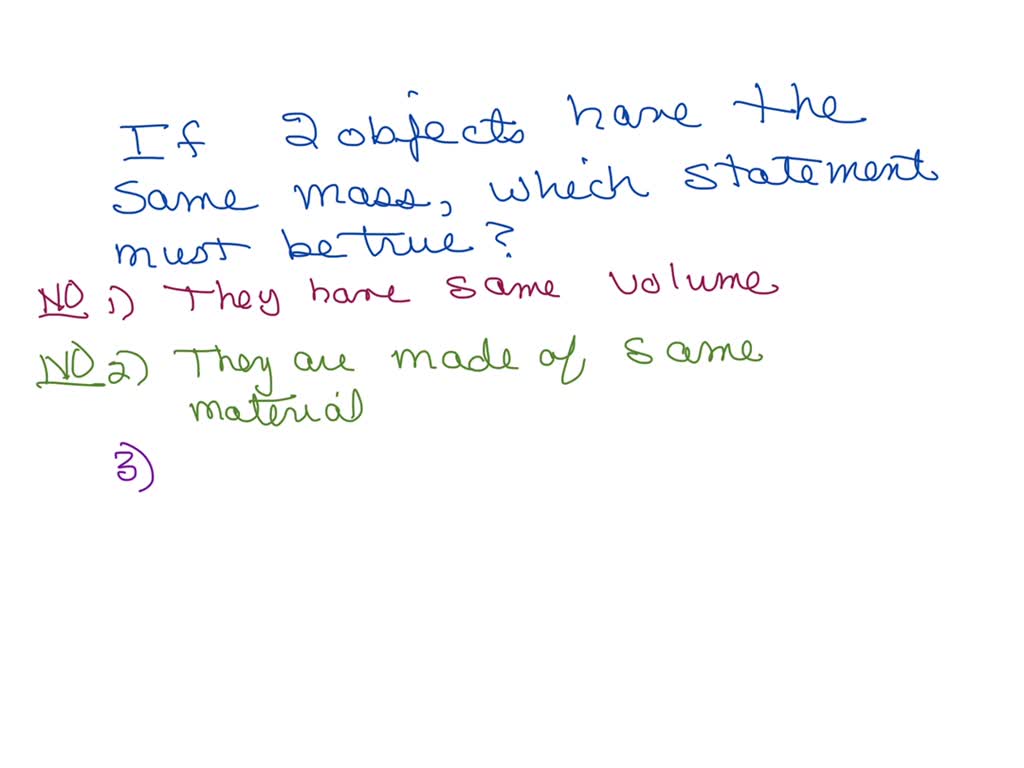 If 2 objects have the
same mass, which statement
must be true?
NO 1) They have same volume
NO 2) They are made of same
material
3)